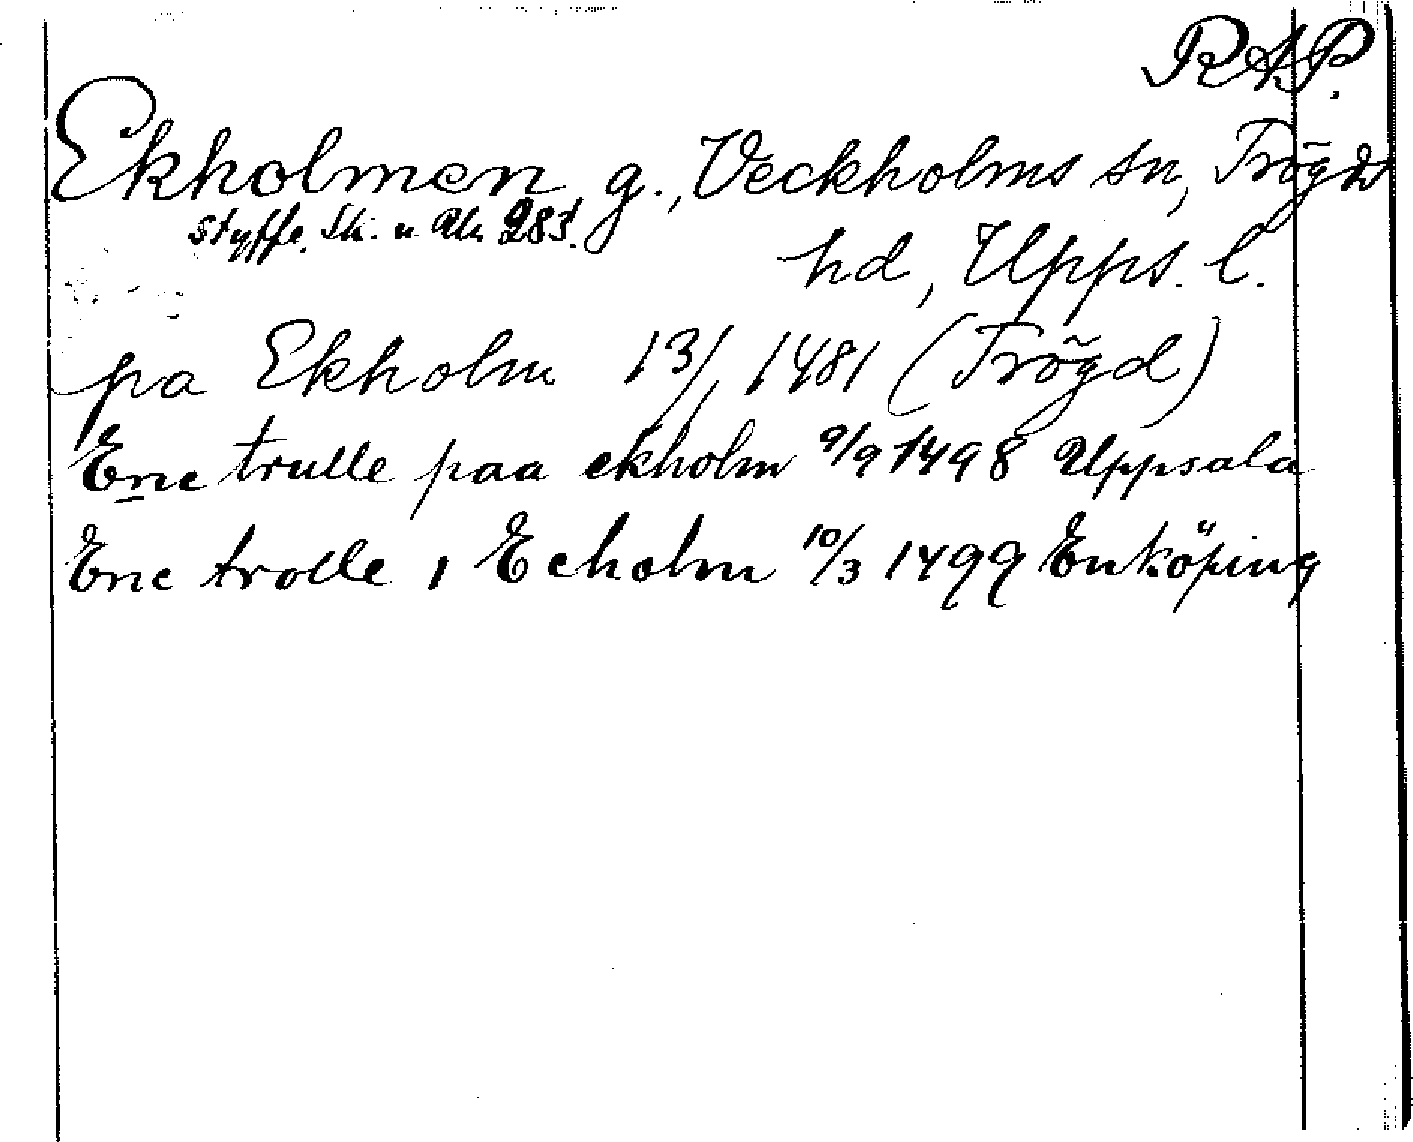 RAP.
Ekholmen, g., Veckholms sn, Trögds
Styffe, Sk. u. 283.
hd, Upps. l.
pa Ekholm 13/1 1481 (Trögd)
Eric trulle paa ekholm 9/9 1498 Uppsala
Eric trolle i Echolm 10/3 1499 Enköping